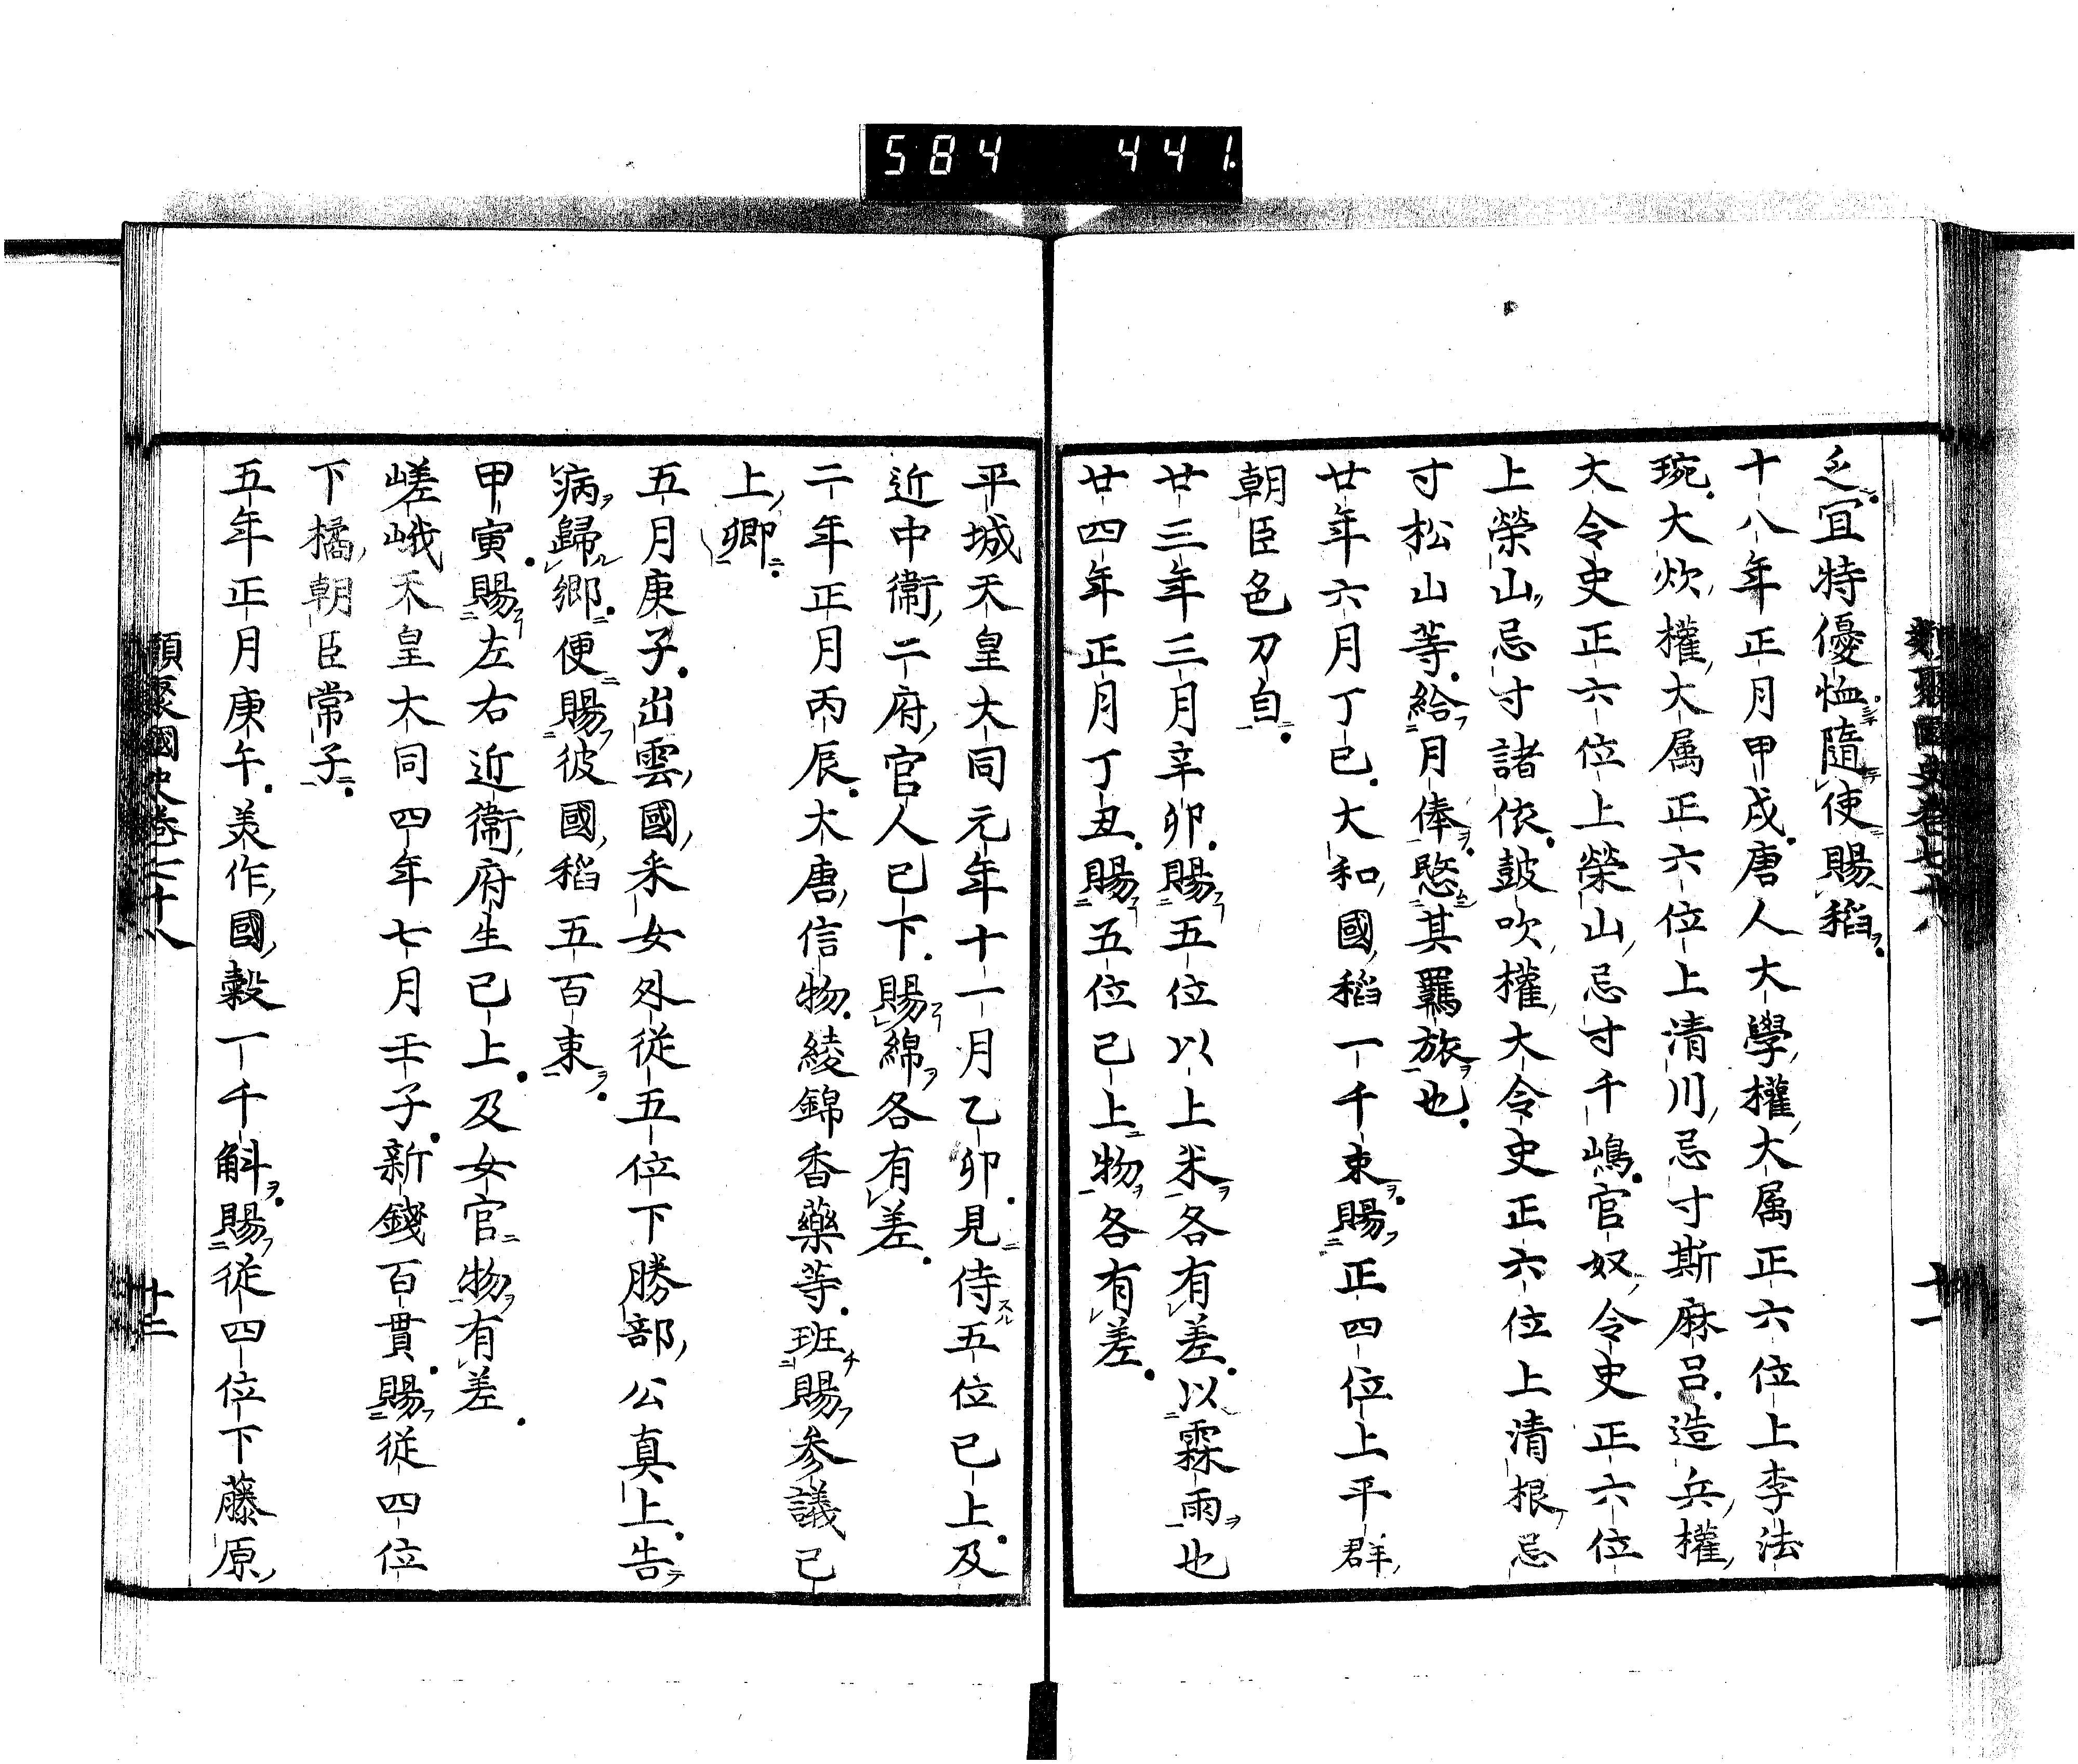 584 441
類聚國史卷七十八
十二
乏宜特優恤隨使賜稻
十八年正月甲戌唐人大學權大属正六位上李法
琬大炊權大属正六位上清川忌寸斯麻呂造兵權
大令史正六位上榮山忌寸千嶋官奴令史正六位
上榮山忌寸諸依皷吹權大令史正六位上清根忌
寸松山等給月俸愍其羈旅也
廿年六月丁巳大和國稻一千束賜正四位上平群
朝臣邑刀自
廿三年三月辛卯賜五位以上米各有差以霖雨也
廿四年正月丁丑賜五位已上物各有差
平城天皇大同元年十一月乙卯見侍五位已上及
近中衞二府官人已下賜綿各有差
二年正月丙辰大唐信物綾錦香藥等班賜参議已
上卿
五月庚子出雲國采女外從五位下勝部公真上告
病歸鄉便賜彼國稻五百束
甲寅賜左右近衞府生已上及女官物有差
嵯峨天皇大同四年七月壬子新錢百貫賜從四位
下橘朝臣常子
五年正月庚午美作國穀一千斛賜從四位下藤原
類聚國史卷七十八
十三